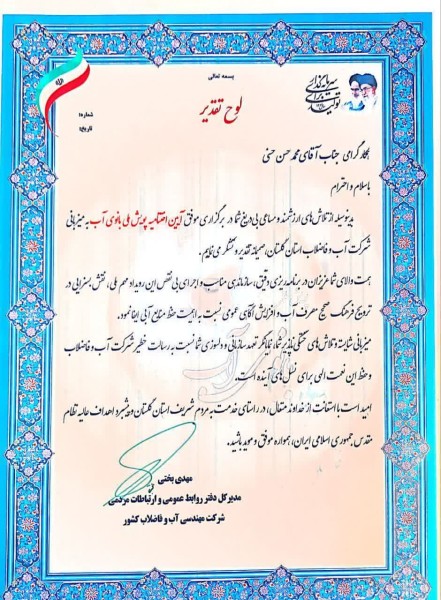 بسمه تعالی
سرمایه‌گذاری
برای تولید
لوح تقدیر
شماره:
تاریخ:
همکار گرامی جناب آقای محمد حسن حسنی
با سلام و احترام
بدینوسیله از تلاش‌های ارزشمند و مساعی بی‌دریغ شما در برگزاری موفق آیین اختتامیه پویش ملی بانوی آب به میزبانی
شرکت آب و فاضلاب استان گلستان، صمیمانه تقدیر و تشکر می‌نمایم.
همت والای شما عزیزان در برنامه‌ریزی دقیق، سازماندهی مناسب و اجرای بی‌نقص این رویداد مهم ملی، نقش بسزایی در
ترویج فرهنگ صحیح مصرف آب و افزایش آگاهی عمومی نسبت به اهمیت حفظ منابع آبی ایفا نمود.
میزبانی شایسته و تلاش‌های خستگی‌ناپذیر شما، نمایانگر تعهد سازمانی و دلسوزی شما نسبت به رسالت خطیر شرکت آب و فاضلاب
و حفظ این نعمت الهی برای نسل‌های آینده است.
امید است با استعانت از خداوند متعال، در راستای خدمت به مردم شریف استان گلستان و پیشبرد اهداف عالیه نظام
مقدس جمهوری اسلامی ایران، همواره موفق و موید باشید.
مهدی بختی
مدیرکل دفتر روابط عمومی و ارتباطات مردمی
شرکت مهندسی آب و فاضلاب کشور